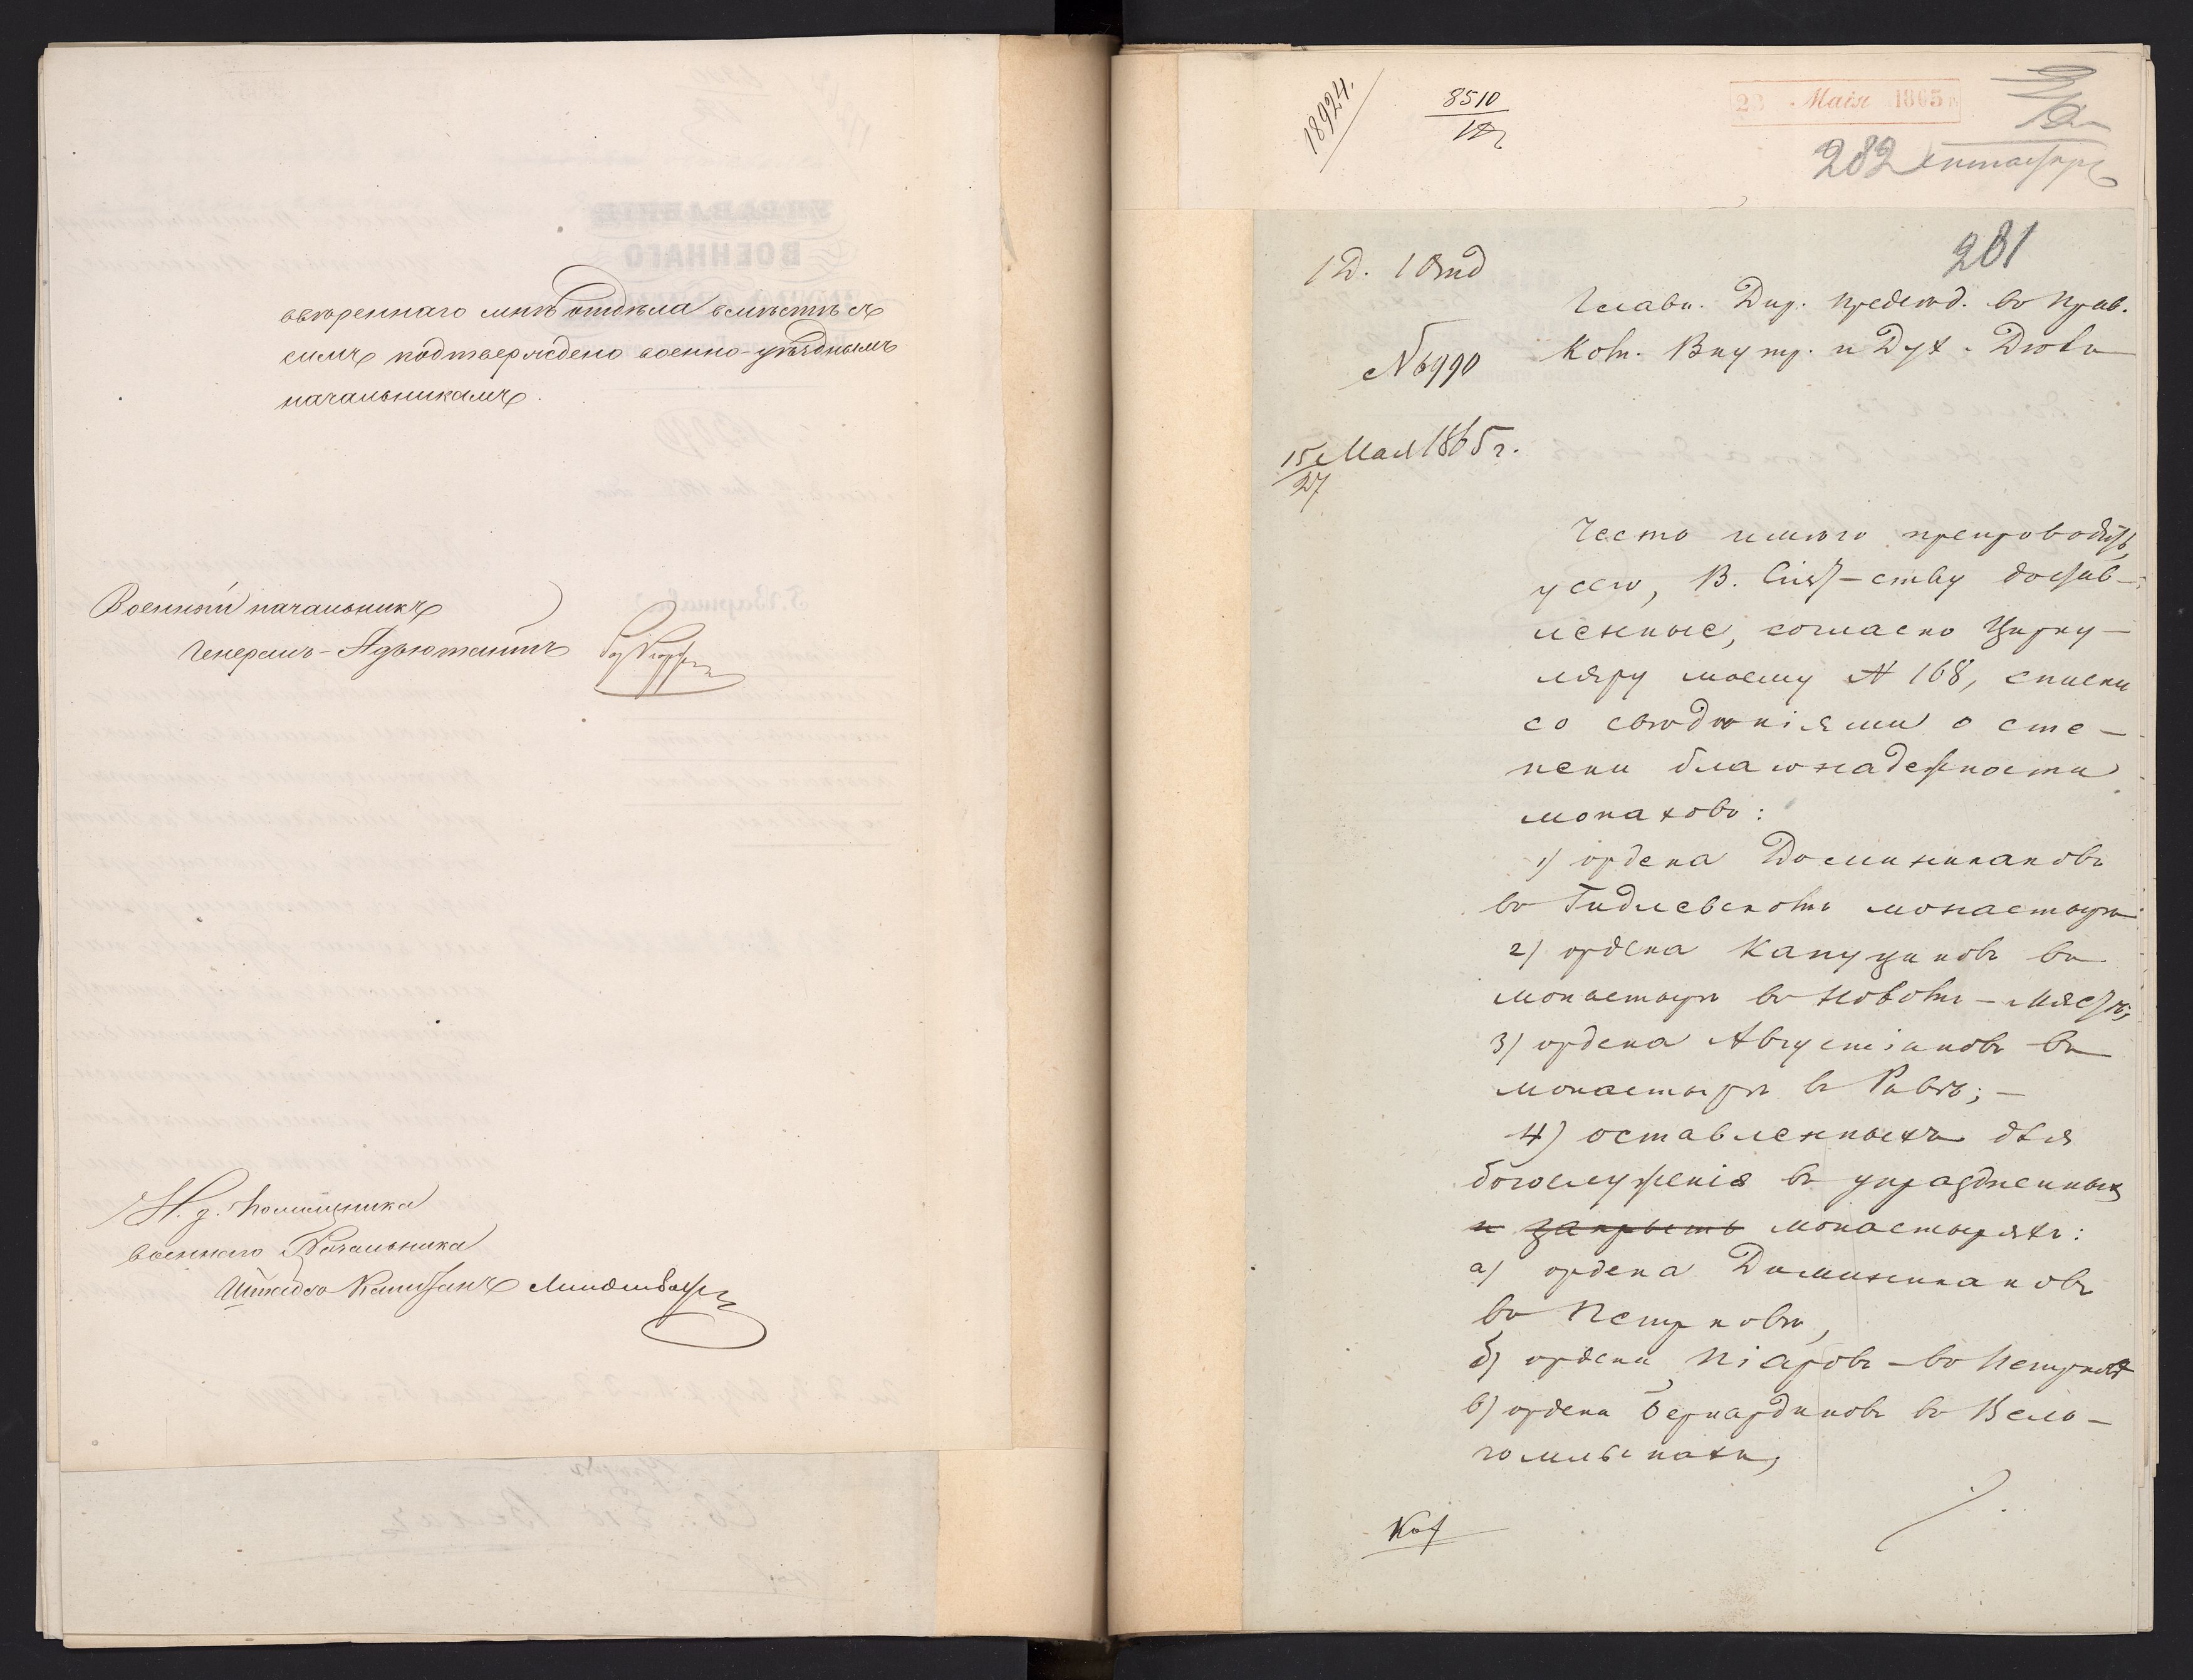 ввѣреннаго мнѣ отдѣла вмѣстѣ съ
симъ подтверждено военно-уѣзднымъ
начальникамъ.
Военный начальникъ
Генералъ-Адъютантъ
И. д. Помощника
военнаго Начальника
Штабсъ Капитанъ
18924.
8510
23 Маія 1865 г.
282
281
1 Д. 1 Отд
Главн. Дир. Предсѣд. въ Прав.
Ком. Внутр. и Дух. Дѣлъ
№ 6990
15/27 Мая 1865 г.
Честь имѣю препроводить
у сего, В. Сіят-ству достав-
ленные, согласно Цирку-
ляру моему № 168, списки
со свѣдѣніями о сте-
пени благонадежности
монаховъ:
1) ордена Доминикановъ
въ Гидлевскомъ монастырѣ
2) ордена Капуциновъ въ
монастырѣ въ Новомъ-Мястѣ;
3) ордена Августіановъ въ
монастырѣ въ Равѣ;
4) оставленныхъ для
богослуженія въ упраздненныхъ
и закрыть монастыряхъ:
а) ордена Доминикановъ
въ Петрковѣ,
б) ордена Піаровъ въ Петрковѣ
в) ордена Бернардиновъ въ Вель-
гомлынахъ,